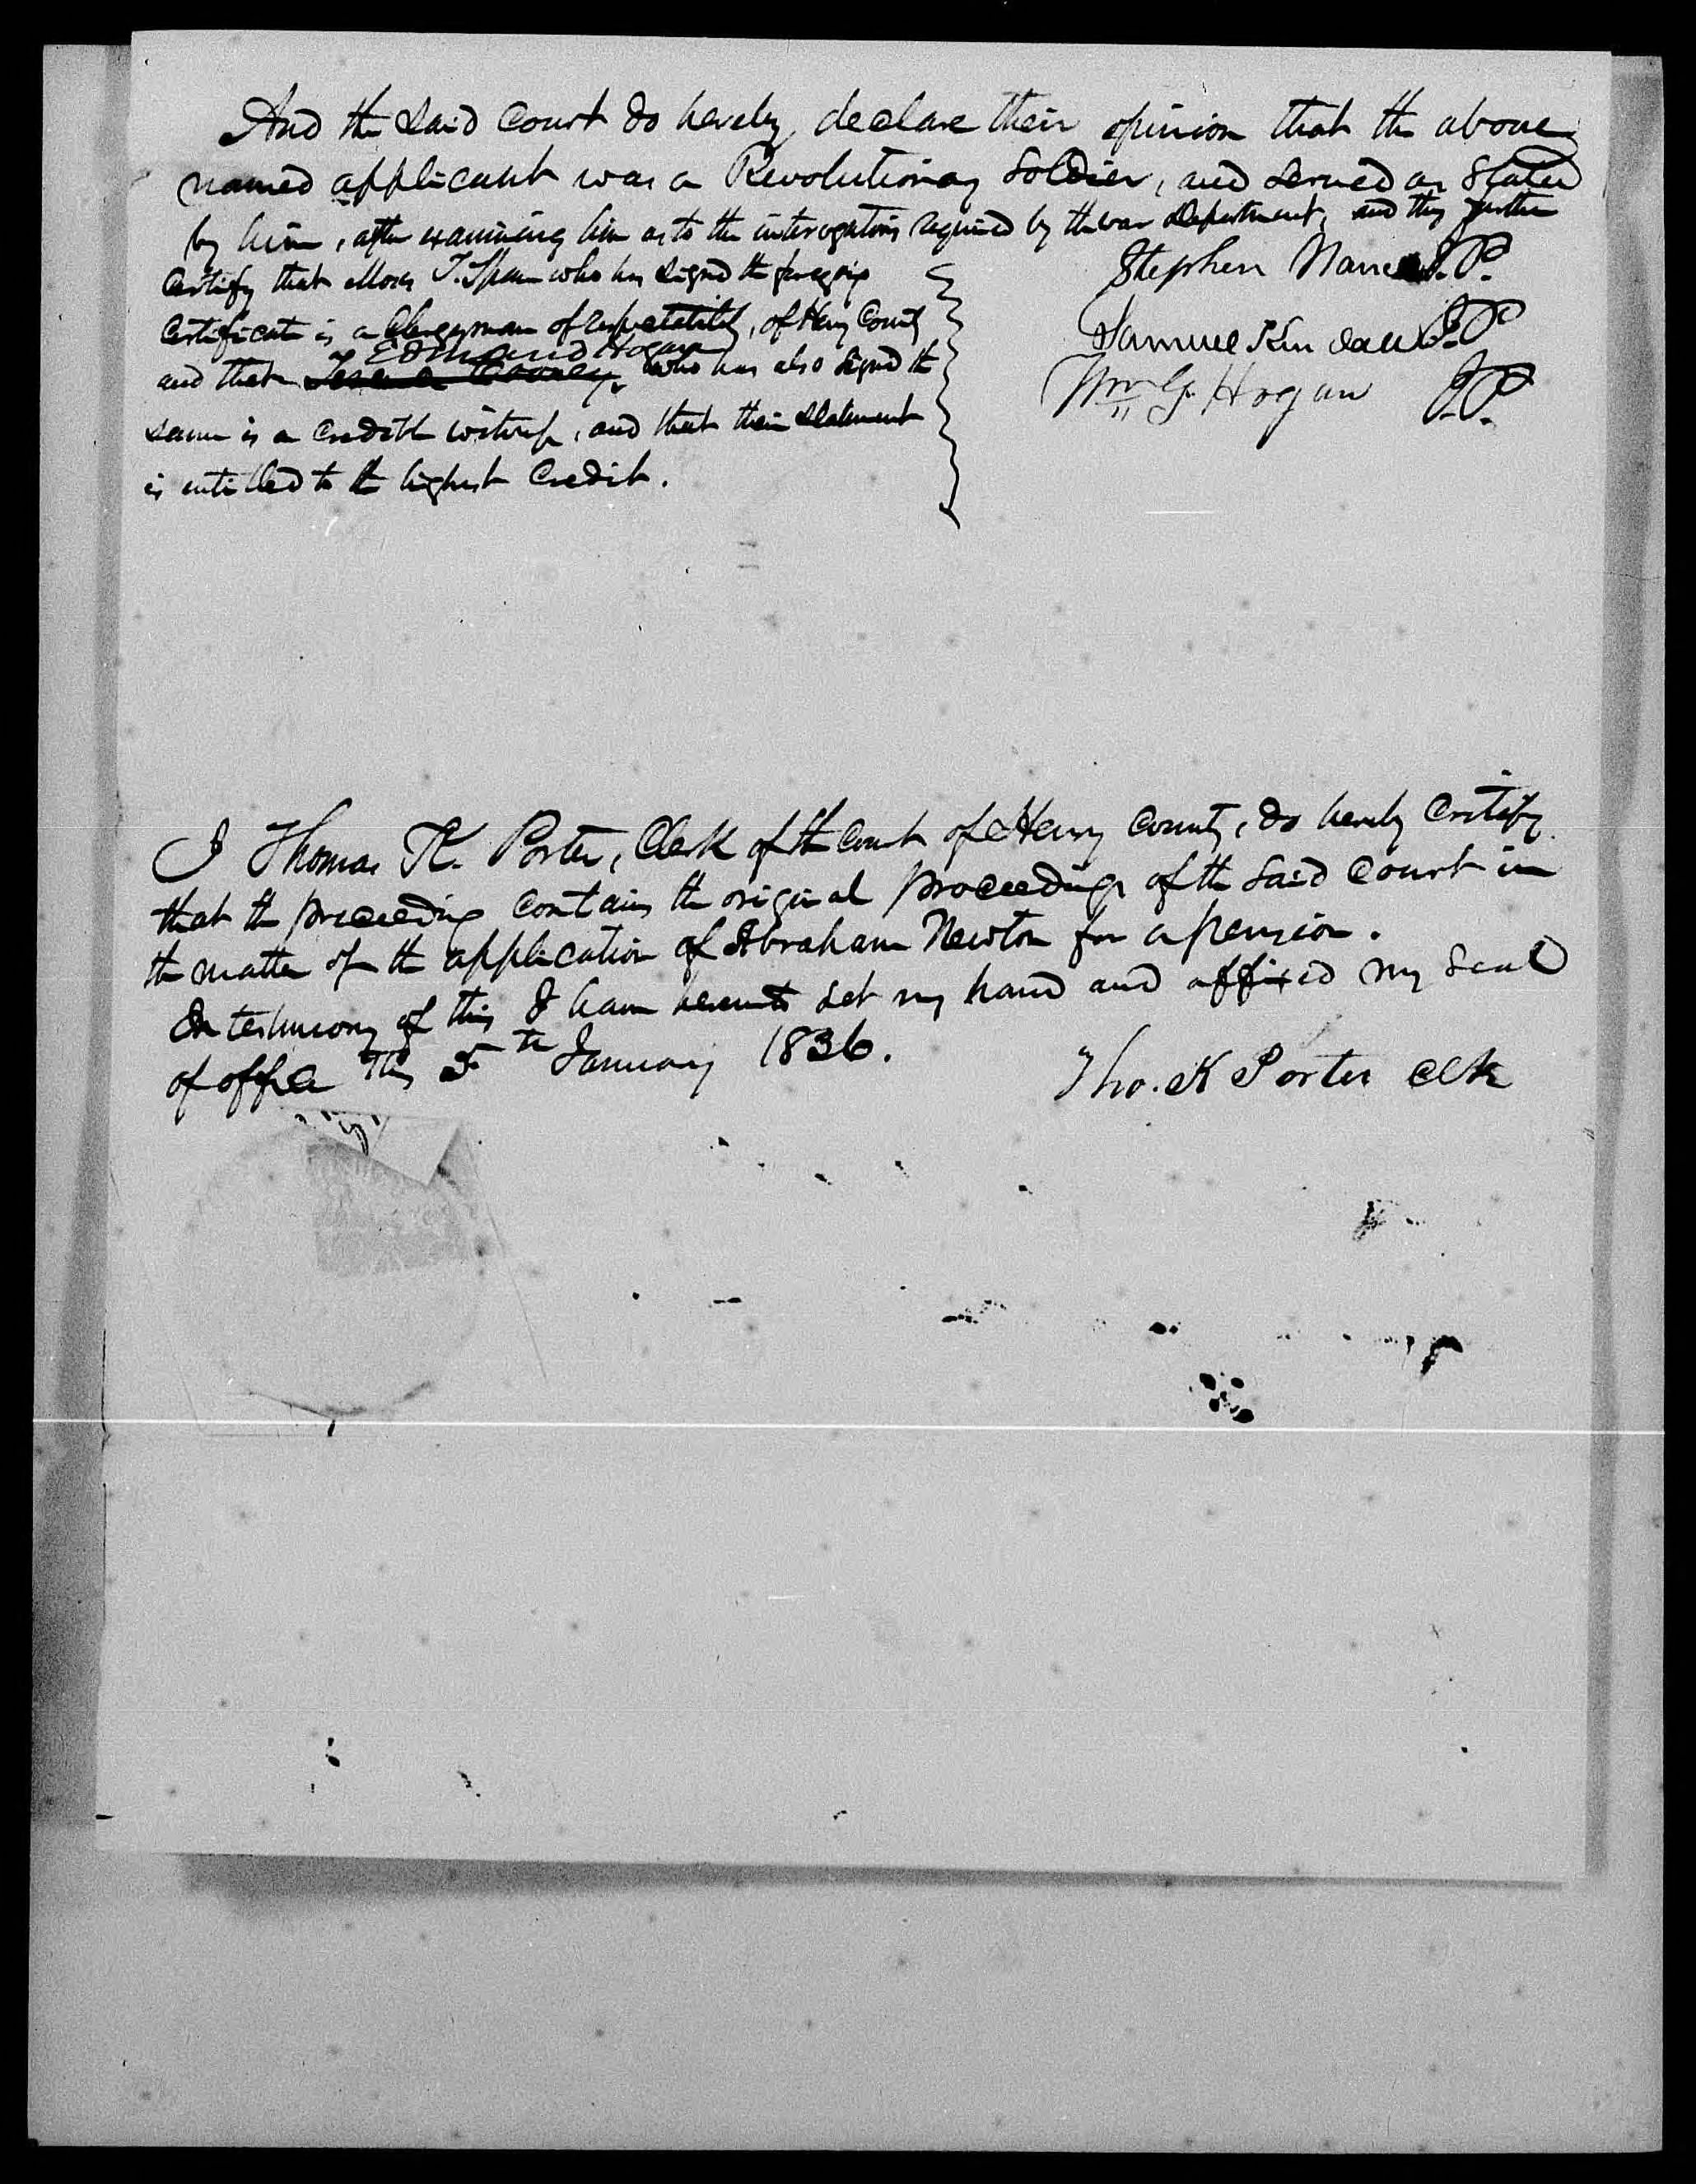 And the said Court do hereby, declare their opinion that the above
named applicant was a Revolutionary Soldier, and served as Stated
by him, after examining him as to the interogatories required by the war Department, and they further
Certify that Moses T. Spann who has signed the foregoing
Certificate is a Clergyman of respectability, of Henry County
Edmund Hogan
and that who has also signed the
same is a credible witness, and that their Statement
is entitled to the highest Credit.
Stephen Nance J.P.
Samuel Kindall J.P
Wm G. Hogan J.P.
I Thomas K. Porter, Clerk of the Court of Henry County, do hereby Certify
that the preceeding contains the original proceedings of the said Court in
the matter of the application of Abraham Newton for a pension.
In testimony of this I have hereunto set my hand and affixed my Seal
of office This 5th January 1836.
Tho. K Porter Clk